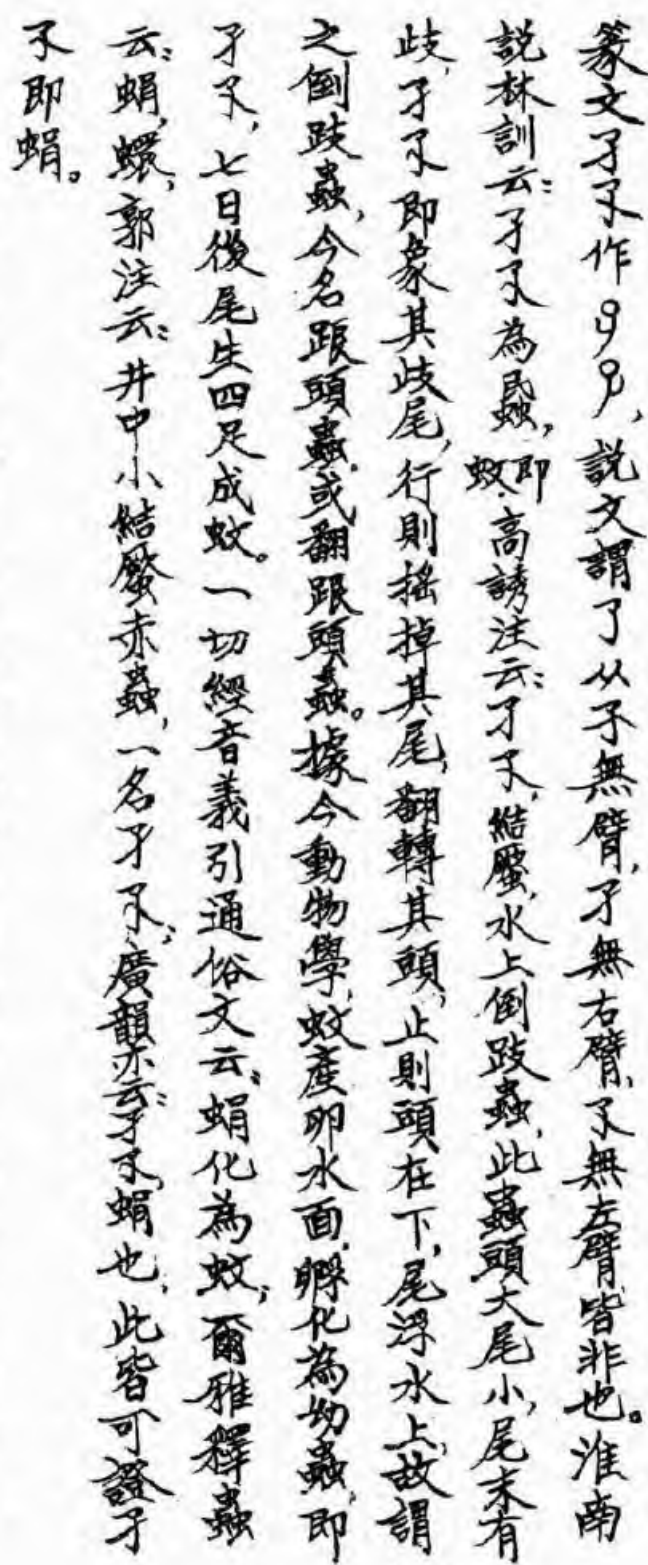 篆文孑孓作，說文謂了从子無臂，孑無右臂，孓無左臂，皆非也。淮南
說林訓云：孑孓為蟁，即蚊．高誘注云：孑孓，結蟨，水上倒跂蟲，此蟲頭大尾小，尾末有
歧，孑孓即象其歧尾，行則搖掉其尾，翻轉其頭，止則頭在下，尾浮水上，故謂
之倒跂蟲，今名跟頭蟲，或翻跟頭蟲。據今動物學，蚊產卵水面，孵化為幼蟲，即
孑孓，七日後尾生四足成蚊。一切經音義引通俗文云：蜎化為蚊；爾雅釋蟲
云：蜎，蠉，郭注云：井中小結蟨赤蟲，一名孑孓；廣韻亦云：孑孓，蜎也，此皆可證孑
孓即蜎。